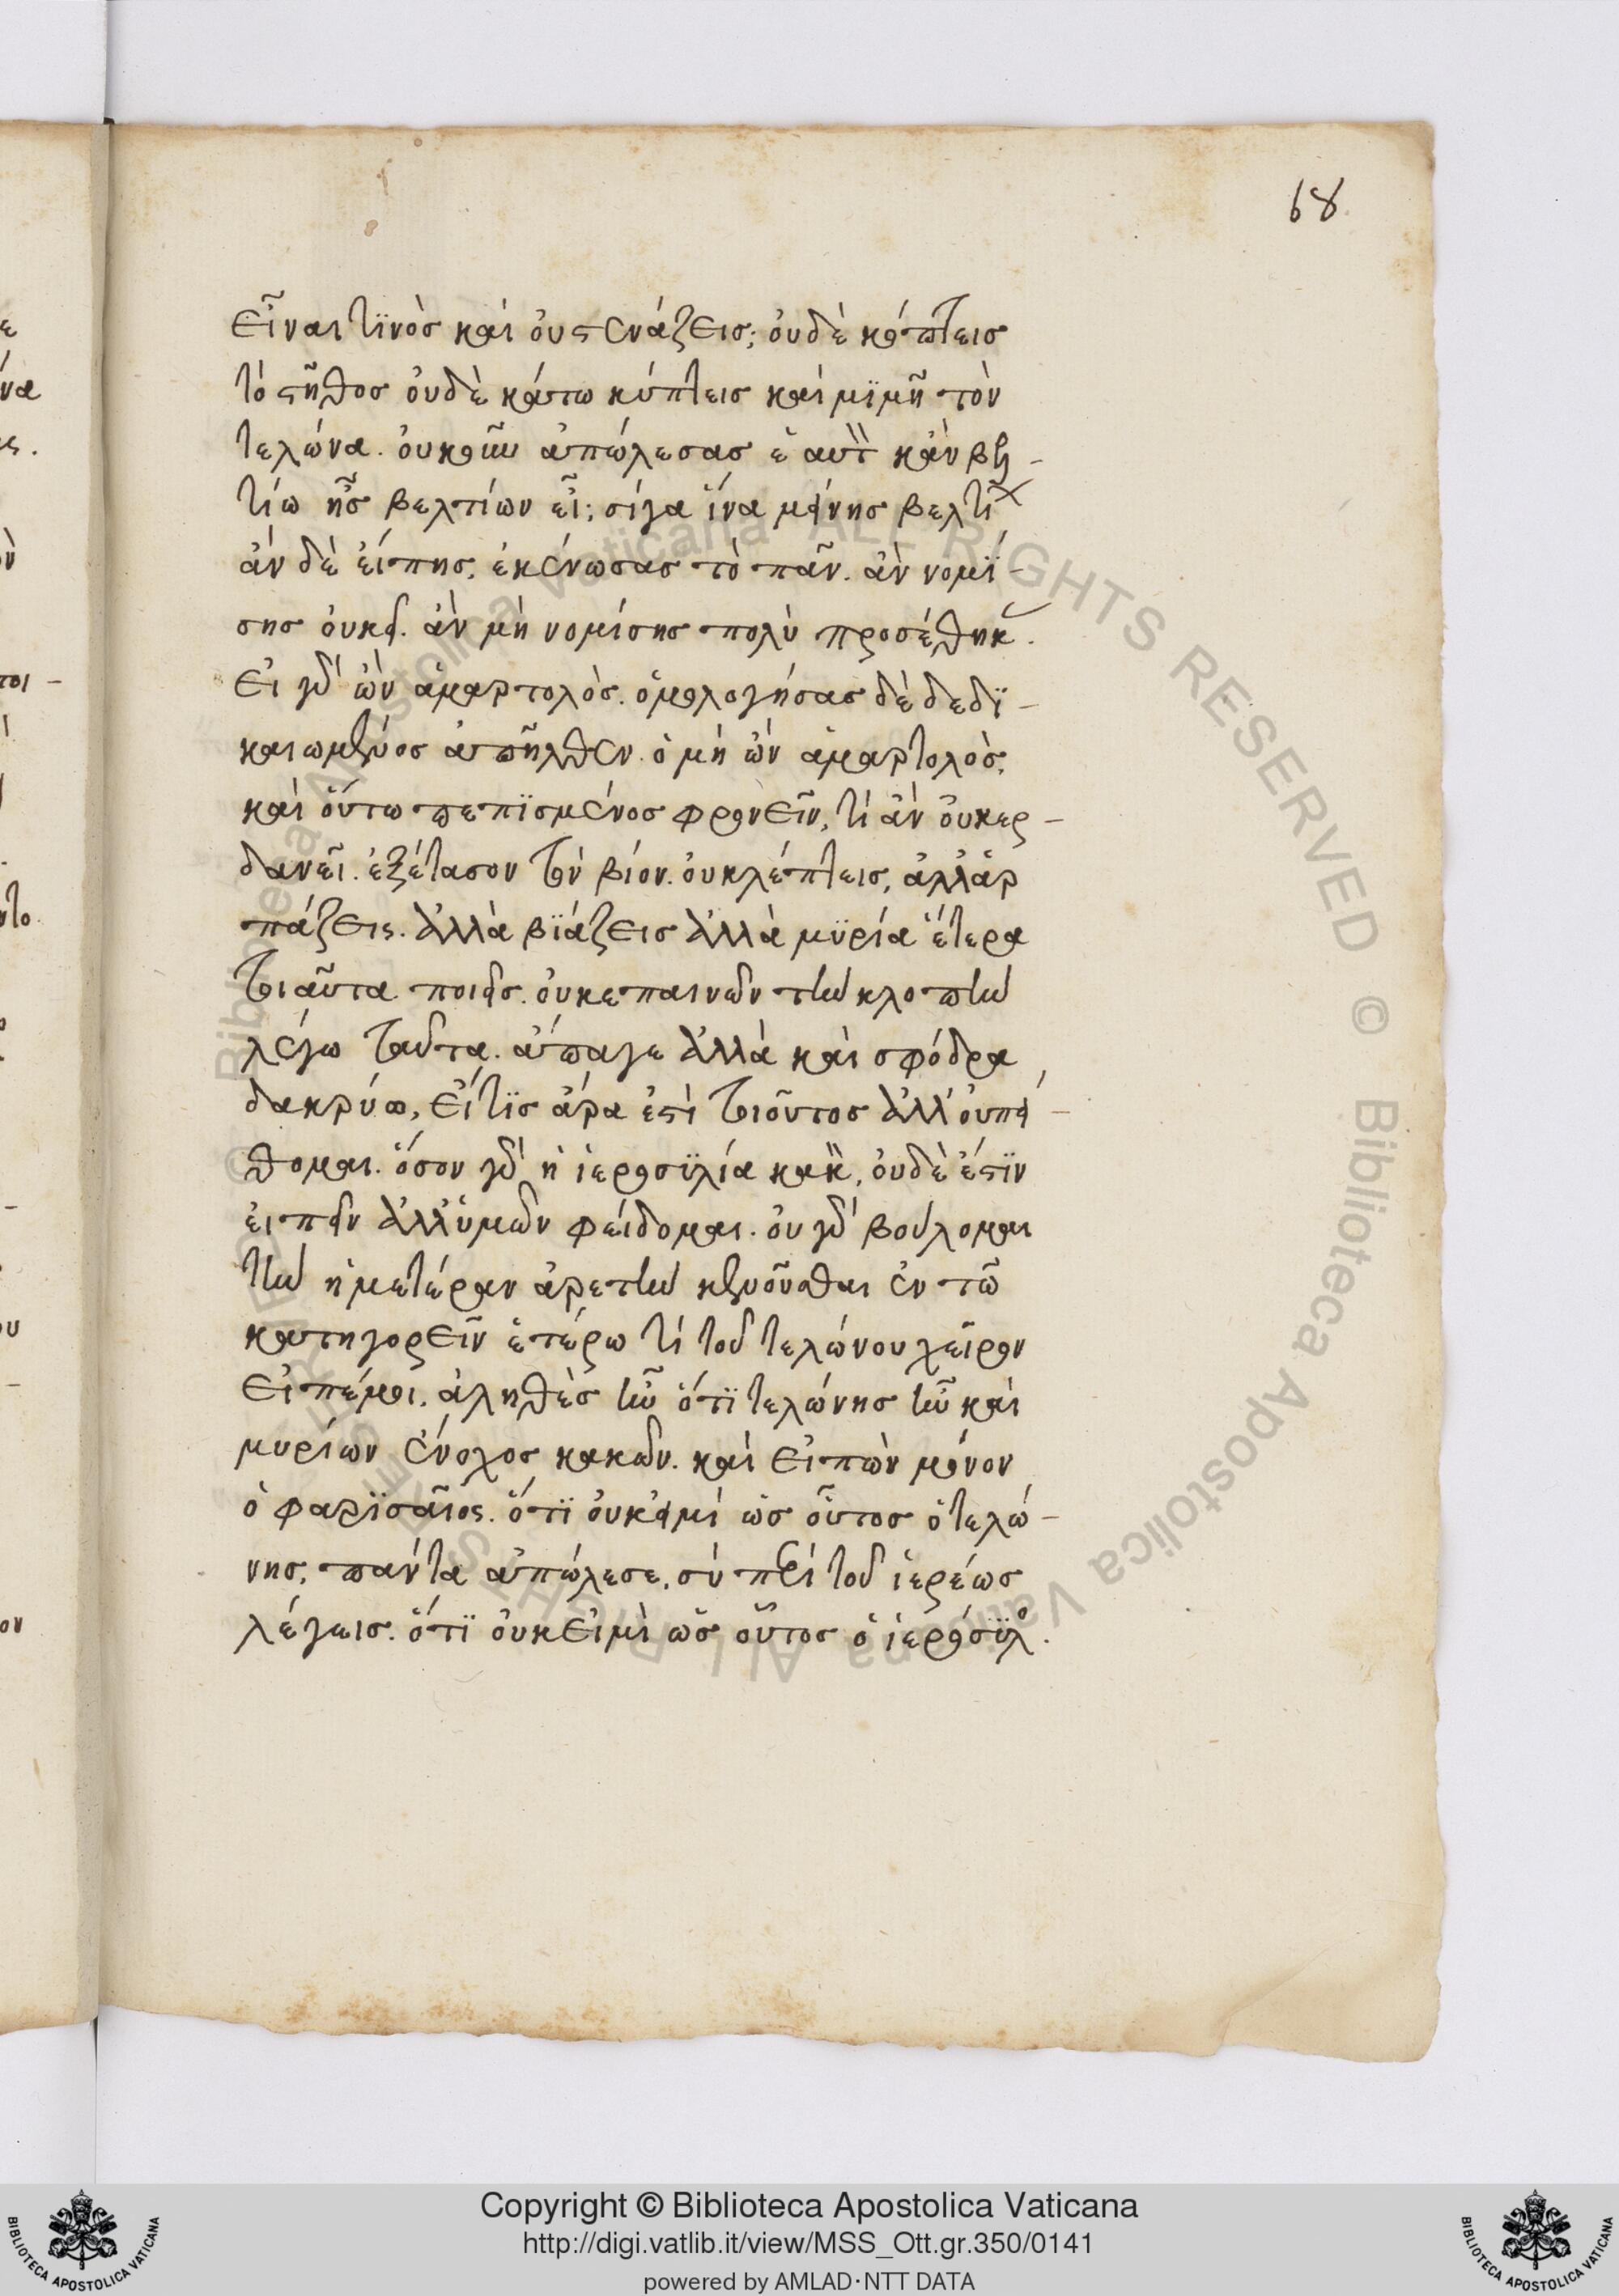 68
εἶναι τϊνὸσ καὶ οὐ στενάζεισ; οὐδὲ κόπτεισ
τὸ στῆθοσ οὐδὲ κάτω κύπτεισ καὶ μϊμῆ τὸν
τελώνα. οὐκοῦν ἀπώλεσασ ἑαυτ κἂν βελ-
τίω ἦσ βελτίων εἶ; σίγα ἵνα μείνησ βελτί
ἂν δὲ εἴπησ, ἐκένωσασ τὸ πᾶν. ἂν νομί-
σησ οὐκ εἶ. ἂν μὴ νομίσησ πολὺ προσέθηκ.
Εἰ γὰρ ὢν ἁμαρτολὸσ. ὁμολογήσασ δὲ δεδϊ-
καιωμένοσ ἀπῆλθεν. ὁ μὴ ὢν ἁμαρτολὸσ,
καὶ οὕτω πεπϊσμένοσ φρονεῖν, τί ἂν οὐ κερ-
δανεῖ. ἐξέτασον τὸν βίον. οὐ κλέπτεισ, ἀλλ' ἁρ
πάζεις. ἀλλὰ βϊάζεισ ἀλλὰ μϋρία ἕτερα
τοιαῦτα ποιεῖσ. οὐκ επαινῶν τὴν κλοπὴν
λέγω ταῦτα. ἄπαγε ἀλλὰ καὶ σφόδρα
δακρύω, εἴ τϊσ ἄρα ἐστὶ τοιοῦτοσ ἀλλ' οὐ πεί-
θομαι. ὅσον γὰρ ἡ ἱεροσϋλία κακ, οὐδὲ ἔστϊν
εἰπεῖν ἀλλ' ὑμῶν φείδομαι. οὐ γὰρ βούλομαι
τὴν ἡμετέραν ἀρετὴν κενοῦσθαι ἐν τῶ
κατηγορεῖν ἑτέρω τί τοῦ τελώνου χεῖρον
εἰπέ μοι. ἀληθὲσ ἦν ὅτϊ τελώνησ ἦν καὶ
μυρίων ἔνοχοσ κακῶν. καὶ εἰπὼν μόνον
ὁ φαρϊσαῖος. ὅτϊ οὐκ εἰμὶ ὡσ οὗτοσ ὁ τελώ-
νησ, πάντα ἀπώλεσε, σὺ περὶ τοῦ ἱερέωσ
λέγεισ. ὅτϊ οὐκ εἰμὶ ὡσ οὗτοσ ὁ ἱερόσϋλο.
Copyright © Biblioteca Apostolica Vaticana
http://digi.vatlib.it/view/MSS_Ott.gr.350/0141
powered by AMLAD·NTT DATA